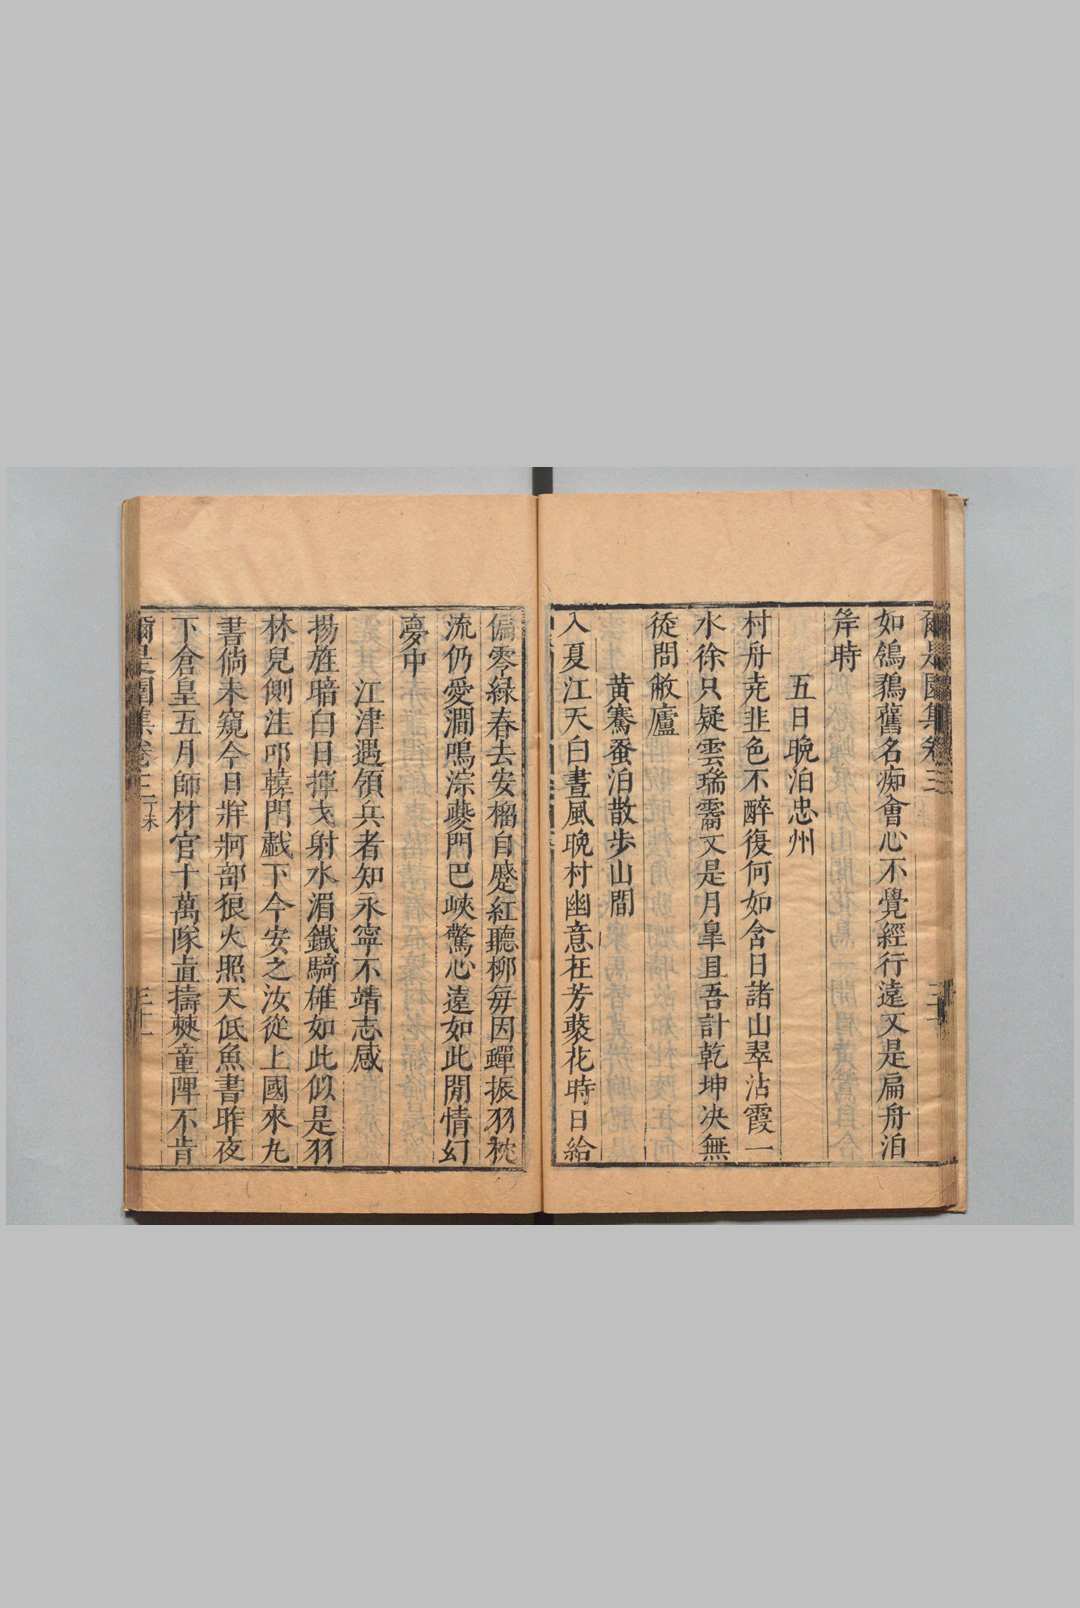 爾是園集卷三
如鴿鷄舊名痴會心不覺經行遠又是扁舟泊
岸時
五日晚泊忠州
村舟尭韭色不醉復何如含日諸山翠沾霞一
水徐只疑雲瑞靄又是月臯且吾計乾坤决無
從問敝廬
黄騫蚕泊散步山間
入夏江天白晝風晩村幽意在芳蕤花時日給
偏零綠春去安榴自蹙紅聽柳每因蟬振羽枕
流仍愛澗鳴淙夔門巴峽驚心遠如此閒情幻
夢中
江津遇領兵者知永寧不靖志感
揚旌暗白日揮戈射水湄鐵騎雄如此似是羽
林兒側注𠮧韓門戲下今安之汝從上國來九
書倘未窺今日牂牁部狠火照天低魚書昨夜
下倉皇五月師材官十萬隊直擣僰童陴不肯
爾是園集卷三